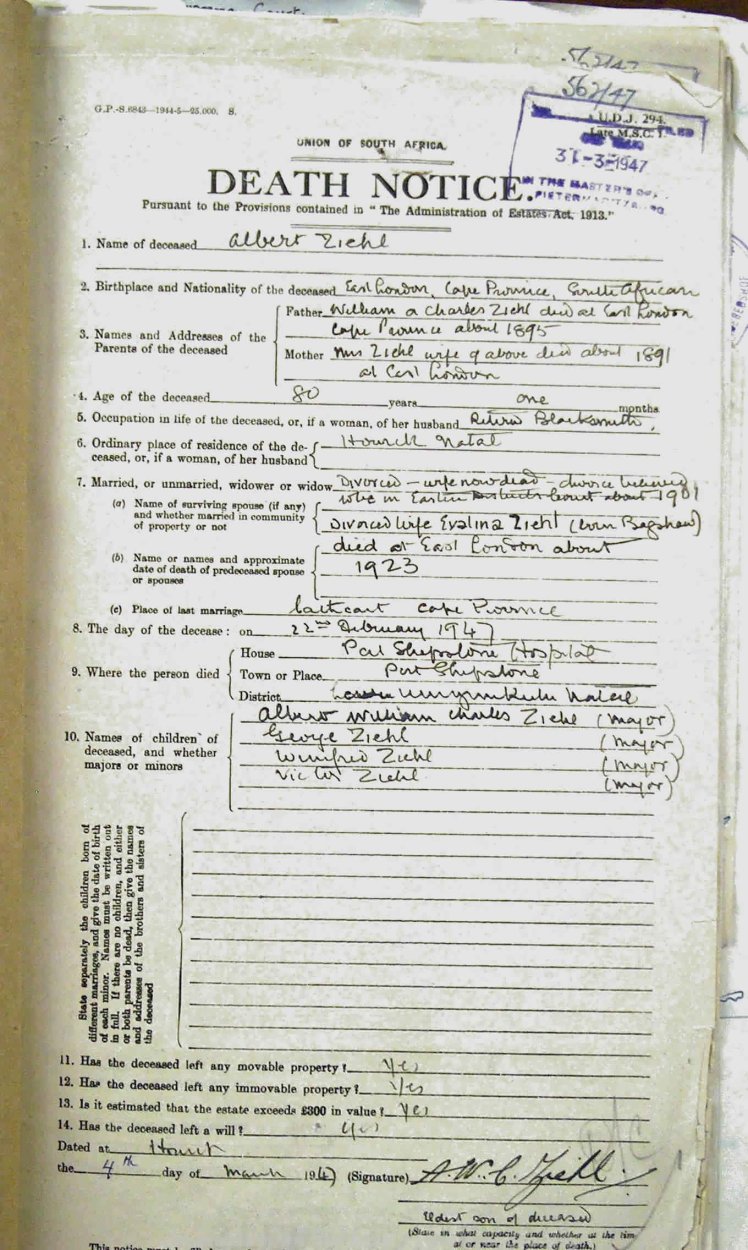 562/47
562/47
G.P.-S.6843—1944-5—25,000. S.
U.D.J. 294.
Late M.S.C. 1.
31-3-1947
IN THE MASTER'S
UNION OF SOUTH AFRICA.
DEATH NOTICE.
Pursuant to the Provisions contained in "The Administration of Estates Act, 1913."
1. Name of deceased Albert Ziehl
2. Birthplace and Nationality of the deceased East London, Cape Province, South African
3. Names and Addresses of the Parents of the deceased
Father William Charles Ziehl died at East London
Cape Province about 1895
Mother Mrs Ziehl wife of above died about 1891
at East London
4. Age of the deceased 80 years one months
5. Occupation in life of the deceased, or, if a woman, of her husband Retired Blacksmith.
6. Ordinary place of residence of the deceased, or, if a woman, of her husband Howick Natal
7. Married, or unmarried, widower or widow Divorced – wife now dead – divorce believed
in Eastern Districts Court about 1901
(a) Name of surviving spouse (if any) and whether married in community of property or not
Divorced wife Evalina Ziehl (born Bagshaw)
(b) Name or names and approximate date of death of predeceased spouse or spouses
died at East London about
1923
(c) Place of last marriage Cathcart Cape Province
8. The day of the decease: on 22nd February 1947
9. Where the person died
House Port Shepstone Hospital
Town or Place Port Shepstone
District Umzimkulu Natal
10. Names of children of deceased, and whether majors or minors
Albert William Charles Ziehl (major)
George Ziehl (major)
Winifred Ziehl (major)
Victor Ziehl (major)
State separately the children born of different marriages, and give the date of birth of each minor. Names must be written out in full. If there are no children, and either or both parents be dead, then give the names and addresses of the brothers and sisters of the deceased
11. Has the deceased left any movable property? Yes
12. Has the deceased left any immovable property? Yes
13. Is it estimated that the estate exceeds £300 in value? Yes
14. Has the deceased left a will? Yes
Dated at Howick
the 4th day of March 1947 (Signature) A.W.C. Ziehl.
Eldest son of deceased
(State in what capacity and whether at the time
at or near the place of death.)